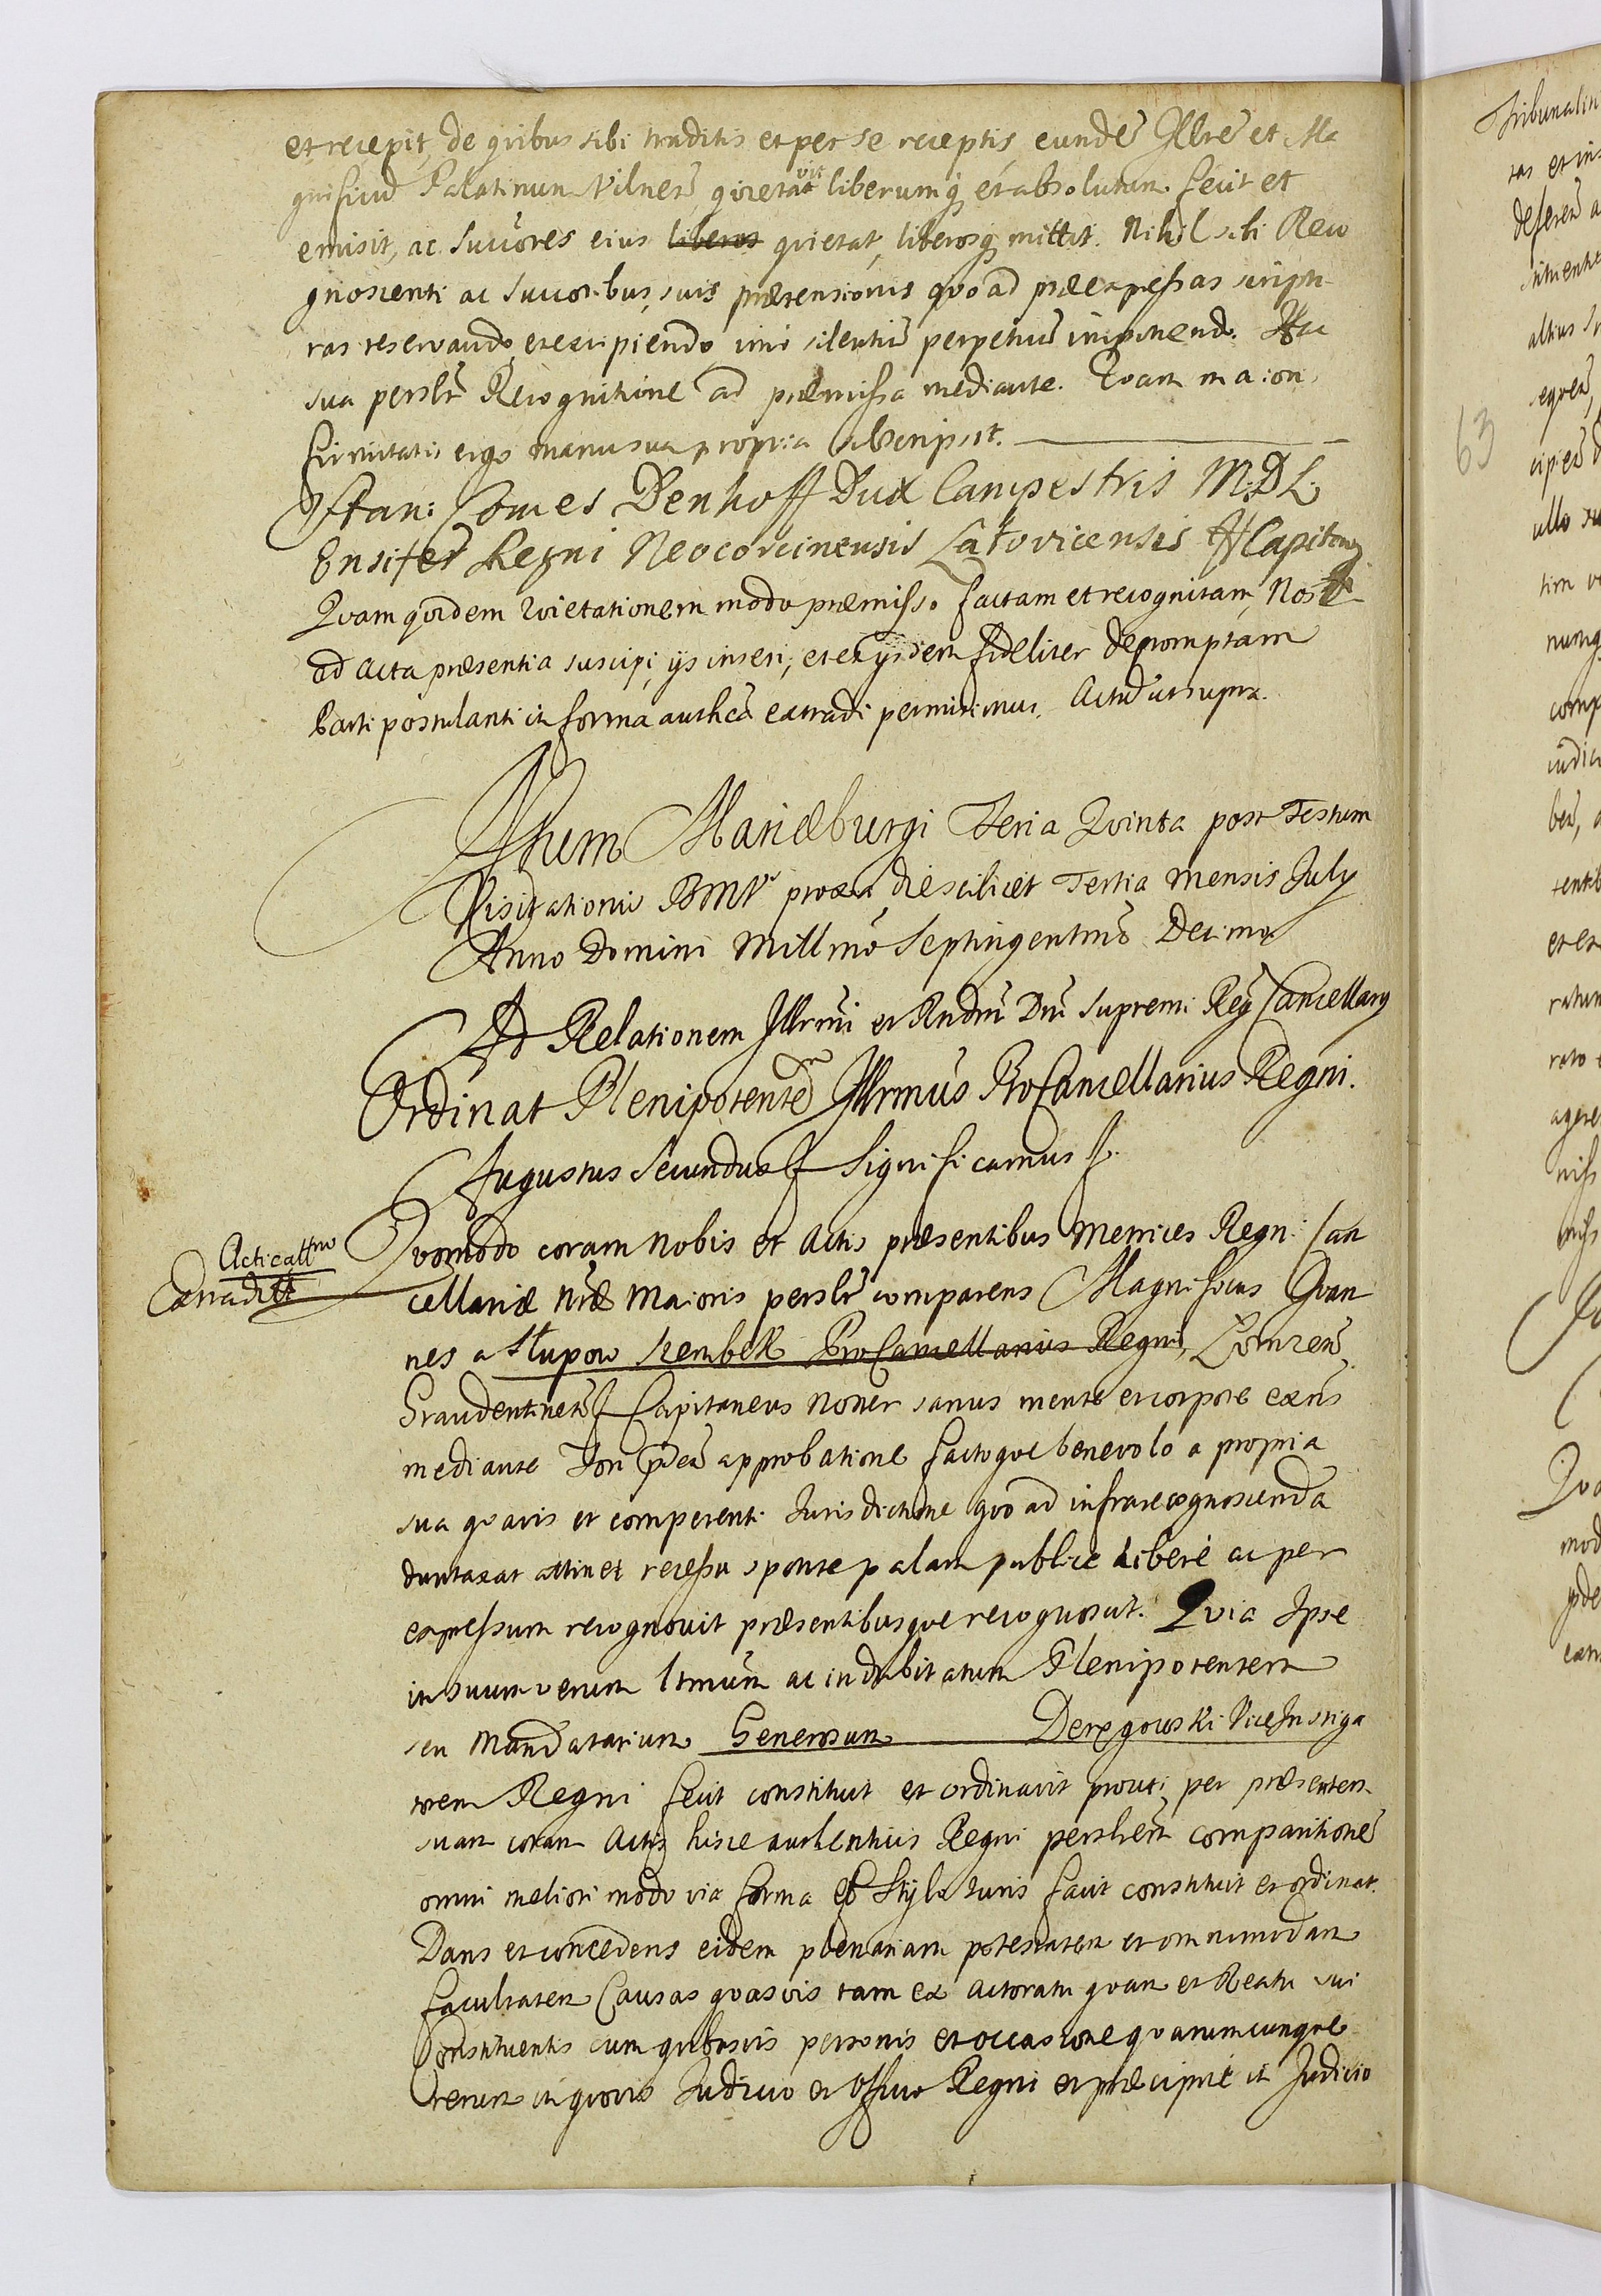 et recepit, de qvibus sibi traditis et per se receptis, eundẽ Jllrẽ et Ma
gnificũ Palatinum Vilneñ, qvietavit liberumq; et absolutum fecit et
emisit, ac Succõres eius liberos qvietat, liberosq; mittit. Nihil sibi Reco
gnoscenti ac Succoribus suis prætensionis qvo ad præexpressas scriptu
ras reservando, et excipiendo, imo silentiũ perpetuũ imponendo. Hac
sua persl̃r Recognitione ad præmissa mediante. Qvam in maioris
firmitatis ergo manu sua propria subscripsit.
Stan: Comes Denhoff Dux Campestris M.D.L.
Ensifer Regni Neocorcinensis Latovicensis Capitang
Qvam qvidem Qvietationem modo præmisso factam et recognitam, Nos
ad Acta præsentia suscipi, ijs inseri, et ex ijsdem fideliter depromptam
Parti postulanti in forma authcã extradi permisimus. Actũ ut supra.
Actum Mariæburgi Feria Qvinta post Festum
Visitationis BMV proxa die scilicet Tertia Mensis July
Anno Domini Millmo Septingentmo Decimo
Ad Relationem Jllrmi et Rndmi Dni Supremi Regj Cancellarij
Ordinat Plenipotente Jllrmus ProCancellarius Regni.
Augustus Secundus Significamus
Acticattm
Extraditt
Qvomodo coram Nobis et Actis præsentibus Metrices Regni Can
cellariæ Nræ Maioris persl̃r comparens Magnificus Joan
nes a Słupow Szembek ProCancellarius Regni, Lomzeñ
Graudentineñ Capitaneus Noster sanus mente et corpore exns
mediante approbatione factoqve benevolo a propria
sua qvavis et competenti Jurisdictione qvo ad infrarecognoscenda
duntaxat attinet recessu sponte palam publice libere ac per
expressum recognovit præsentibusqve recognoscit. Qvia Ipse
in suum verum ltmum ac indubitatum Plenipotentem
seu Mandatarium Generosum Deregowski ViceInstiga
torem Regni fecit constituit et ordinavit prouti per præsentem
suam coram Actis hisce authenticis Regni perslem comparitionẽ
omni meliori modo via forma et Stylo Juris facit constituit et ordinat.
Dans et concedens eidem plenariam potestatem et omnimodam
facultatem Causas qvasvis tam ex Actoratu qvam et Reatu sui
Constituentis cum qvibusvis personis et occasione qvarumcunqve
rerum in qvovis Judicio et Officio Regni et præcipuè in Judicio
63